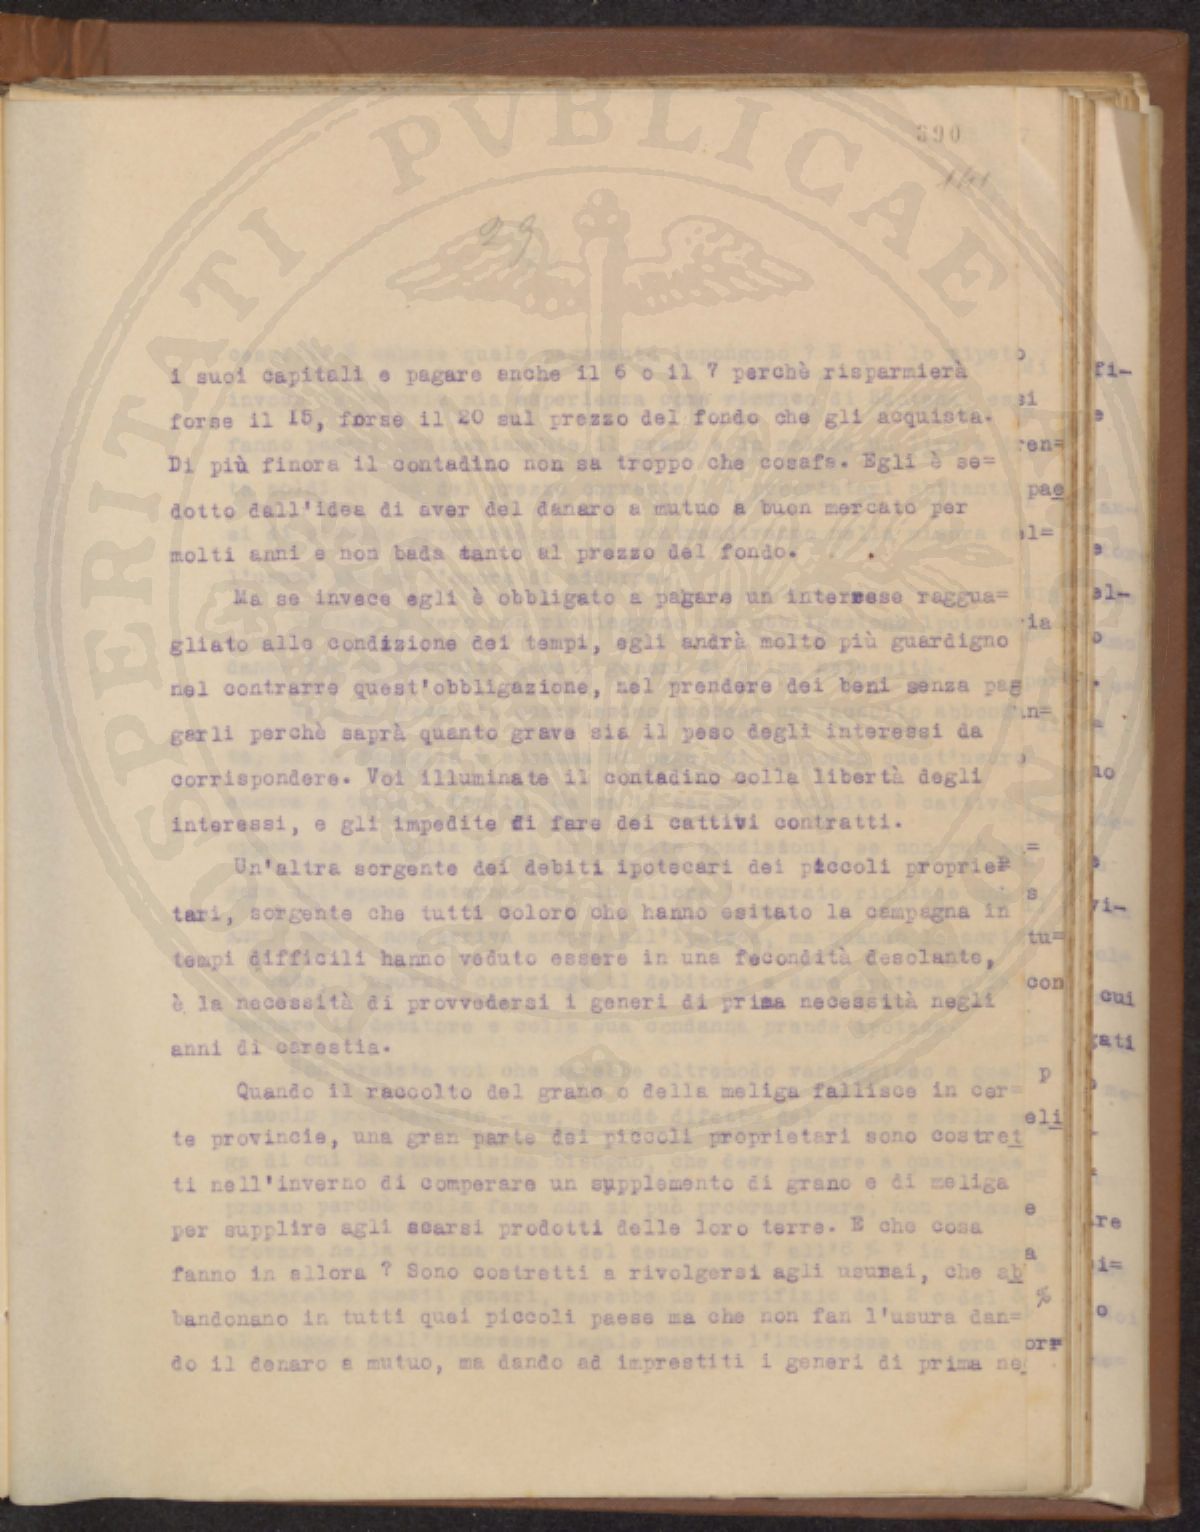 390
141
29
i suoi capitali e pagare anche il 6 o il 7 perchè risparmierà
forse il 15, forse il 20 sul prezzo del fondo che gli acquista.
Di più finora il contadino non sa troppo che cosafa. Egli è se=
dotto dall'idea di aver del danaro a mutuo a buon mercato per
molti anni e non bada tanto al prezzo del fondo.
Ma se invece egli è obbligato a pagare un interesse raggua=
gliato alle condizione dei tempi, egli andrà molto più guardigno
nel contrarre quest'obbligazione, nel prendere dei beni senza pag
garli perchè saprà quanto grave sia il peso degli interessi da
corrispondere. Voi illuminate il contadino colla libertà degli
interessi, e gli impedite di fare dei cattivi contratti.
Un'altra sorgente dei debiti ipotecari dei piccoli proprie=
tari, sorgente che tutti coloro che hanno esitato la campagna in
tempi difficili hanno veduto essere in una fecondità desolante,
è la necessità di provvedersi i generi di prima necessità negli
anni di carestia.
Quando il raccolto del grano o della meliga fallisce in cer=
te provincie, una gran parte dei piccoli proprietari sono costret
ti nell'inverno di comperare un supplemento di grano e di meliga
per supplire agli scarsi prodotti delle loro terre. E che cosa
fanno in allora ? Sono costretti a rivolgersi agli usurai, che ab
bandonano in tutti quei piccoli paese ma che non fan l'usura dan=
do il denaro a mutuo, ma dando ad imprestiti i generi di prima ne
SPERITATI PUBLICAE